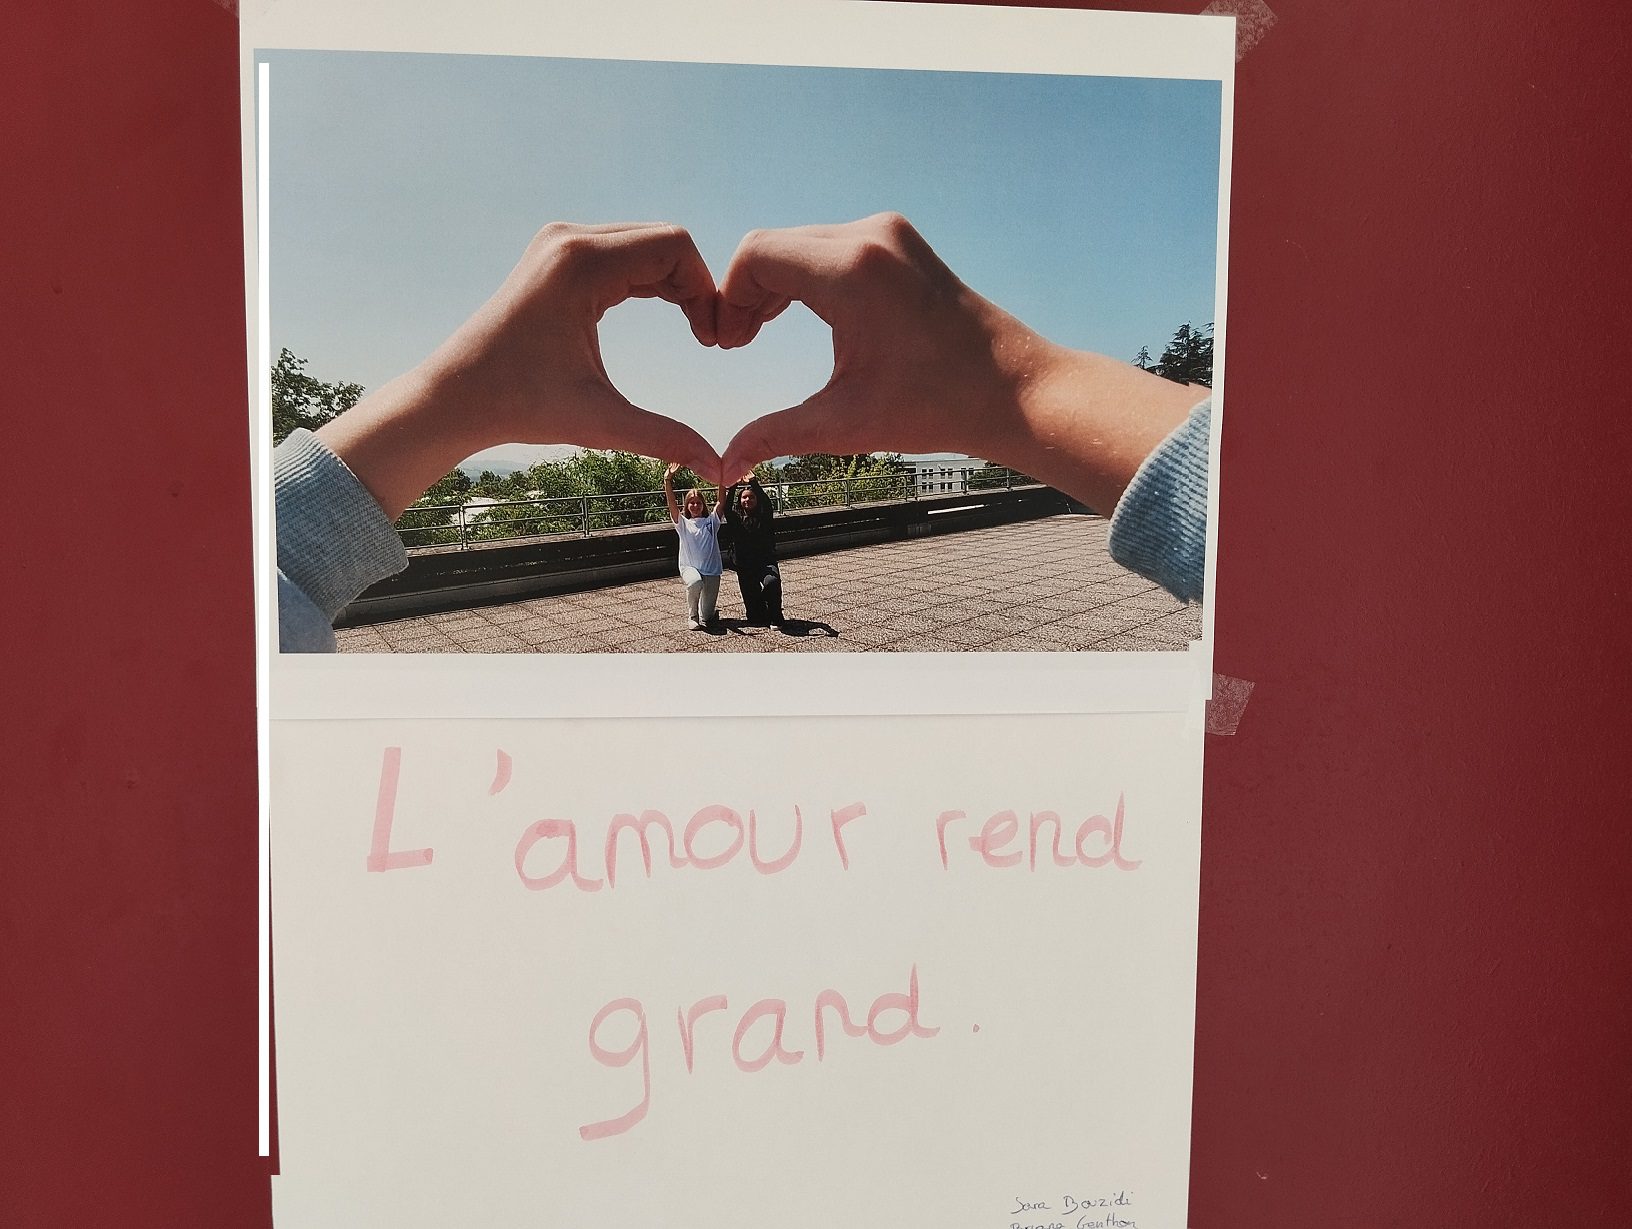 L'amour rend
grand.
Sara Bouzidi
Genthon